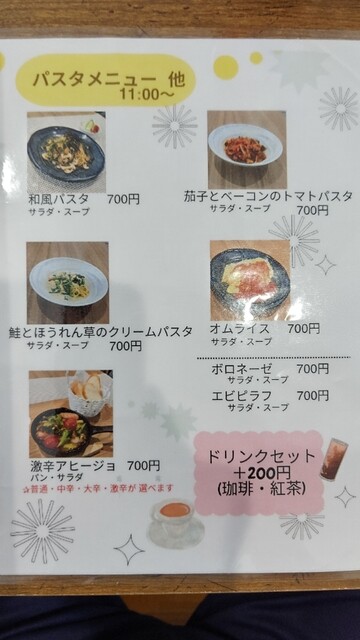 パスタメニュー 他
11:00〜
和風パスタ 700円
サラダ・スープ
茄子とベーコンのトマトパスタ
サラダ・スープ 700円
鮭とほうれん草のクリームパスタ
サラダ・スープ 700円
オムライス 700円
サラダ・スープ
ボロネーゼ 700円
サラダ・スープ
エビピラフ 700円
サラダ・スープ
激辛アヒージョ 700円
パン・サラダ
☆普通・中辛・大辛・激辛が 選べます
ドリンクセット
+200円
(珈琲・紅茶)